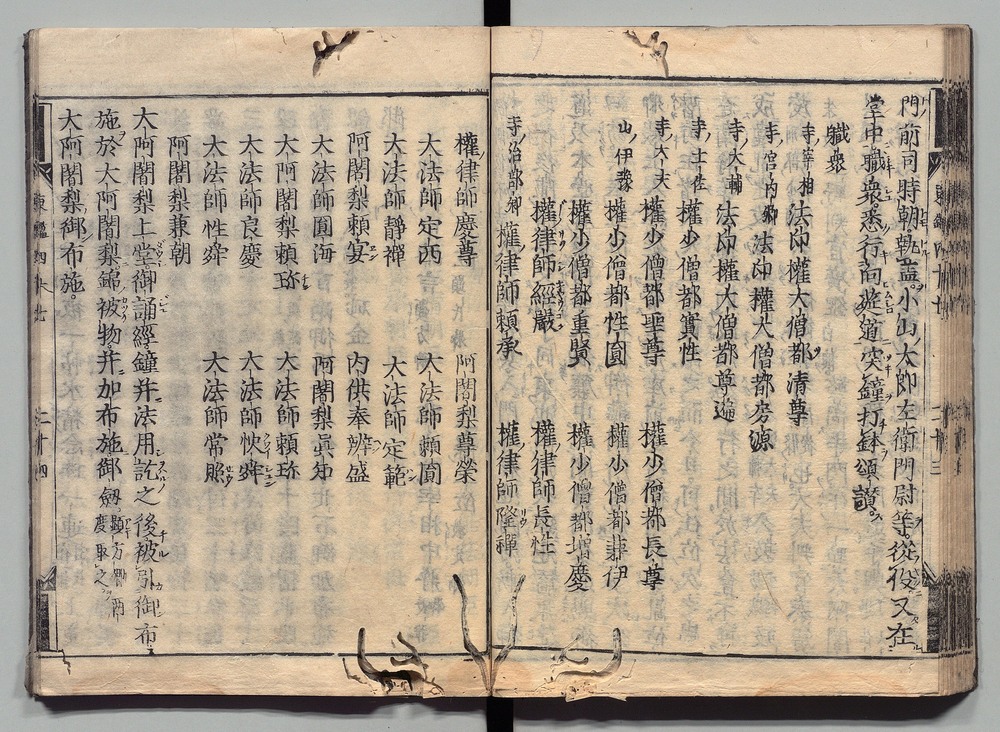 門前司時朝執蓋小山太郎左衛門尉等從役又在
堂中職衆悉行向莚道突鐘打鉢頌讃
職衆
寺宰相 法印權大僧都清尊
寺宮内卿 法印權大僧都房源
寺大輔 法印權大僧都尊遍
寺土佐 權少僧都實性
寺大夫 權少僧都聖尊 權少僧都長尊
山伊豫 權少僧都性圓 權少僧都兼伊
權少僧都重賢 權少僧都増慶
權律師經嚴 權律師長性
寺治部卿 權律師頼承 權律師隆禪
權律師慶尊 阿闍梨尊榮
大法師定西 大法師頼圓
大法師靜禪 大法師定範
阿闍梨頼宴 内供奉辨盛
大法師圓海 阿闍梨眞弁
大阿闍梨頼珎 大法師頼珎
大法師良慶 大法師快
大法師性舜 大法師常照
阿闍梨兼朝
大阿闍梨上堂御誦經鐘并法用訖之後被引御布
施於大阿闍梨錦被物并加布施御劔顯方
大阿闍梨御布施
東鑑四十七
二十三
二十四